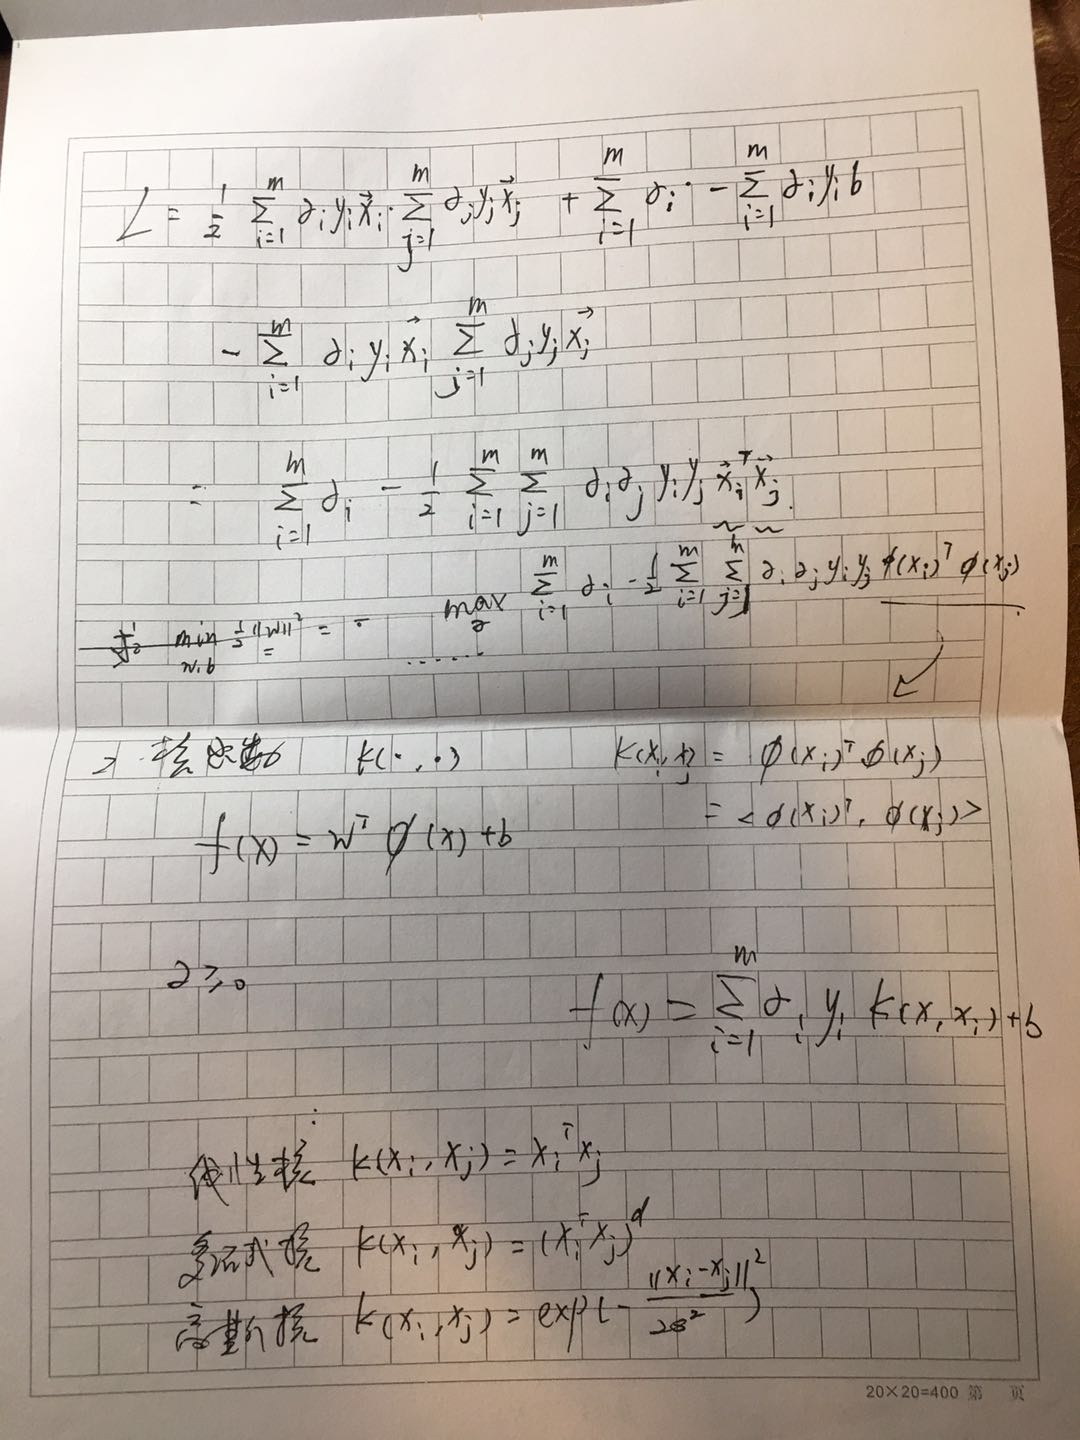 L = 1/2 ∑_{i=1}^{m} ∂_i y_i x⃗_i · ∑_{j=1}^{m} ∂_j y_j x⃗_j + ∑_{i=1}^{m} ∂_i - ∑_{i=1}^{m} ∂_i y_i b
- ∑_{i=1}^{m} ∂_i y_i x⃗_i ∑_{j=1}^{m} ∂_j y_j x⃗_j
= ∑_{i=1}^{m} ∂_i - 1/2 ∑_{i=1}^{m} ∑_{j=1}^{m} ∂_i ∂_j y_i y_j x⃗_i^T x⃗_j
max_∂ ∑_{i=1}^{m} ∂_i - 1/2 ∑_{i=1}^{m} ∑_{j=1}^{m} ∂_i ∂_j y_i y_j φ(x_i)^T φ(x_j)
min_{w,b} 1/2 ||w||² =
......
2 核函数 k(·,·) k(x_i, x_j) = φ(x_i)^T φ(x_j)
= <φ(x_i)^T, φ(x_j)>
f(x) = w^T φ(x) + b
∂ ≥ 0
f(x) = ∑_{i=1}^{m} ∂_i y_i k(x, x_i) + b
线性核 k(x_i, x_j) = x_i^T x_j
多项式核 k(x_i, x_j) = (x_i^T x_j)^d
高斯核 k(x_i, x_j) = exp(- ||x_i - x_j||² / 2δ²)
20×20=400 第 页